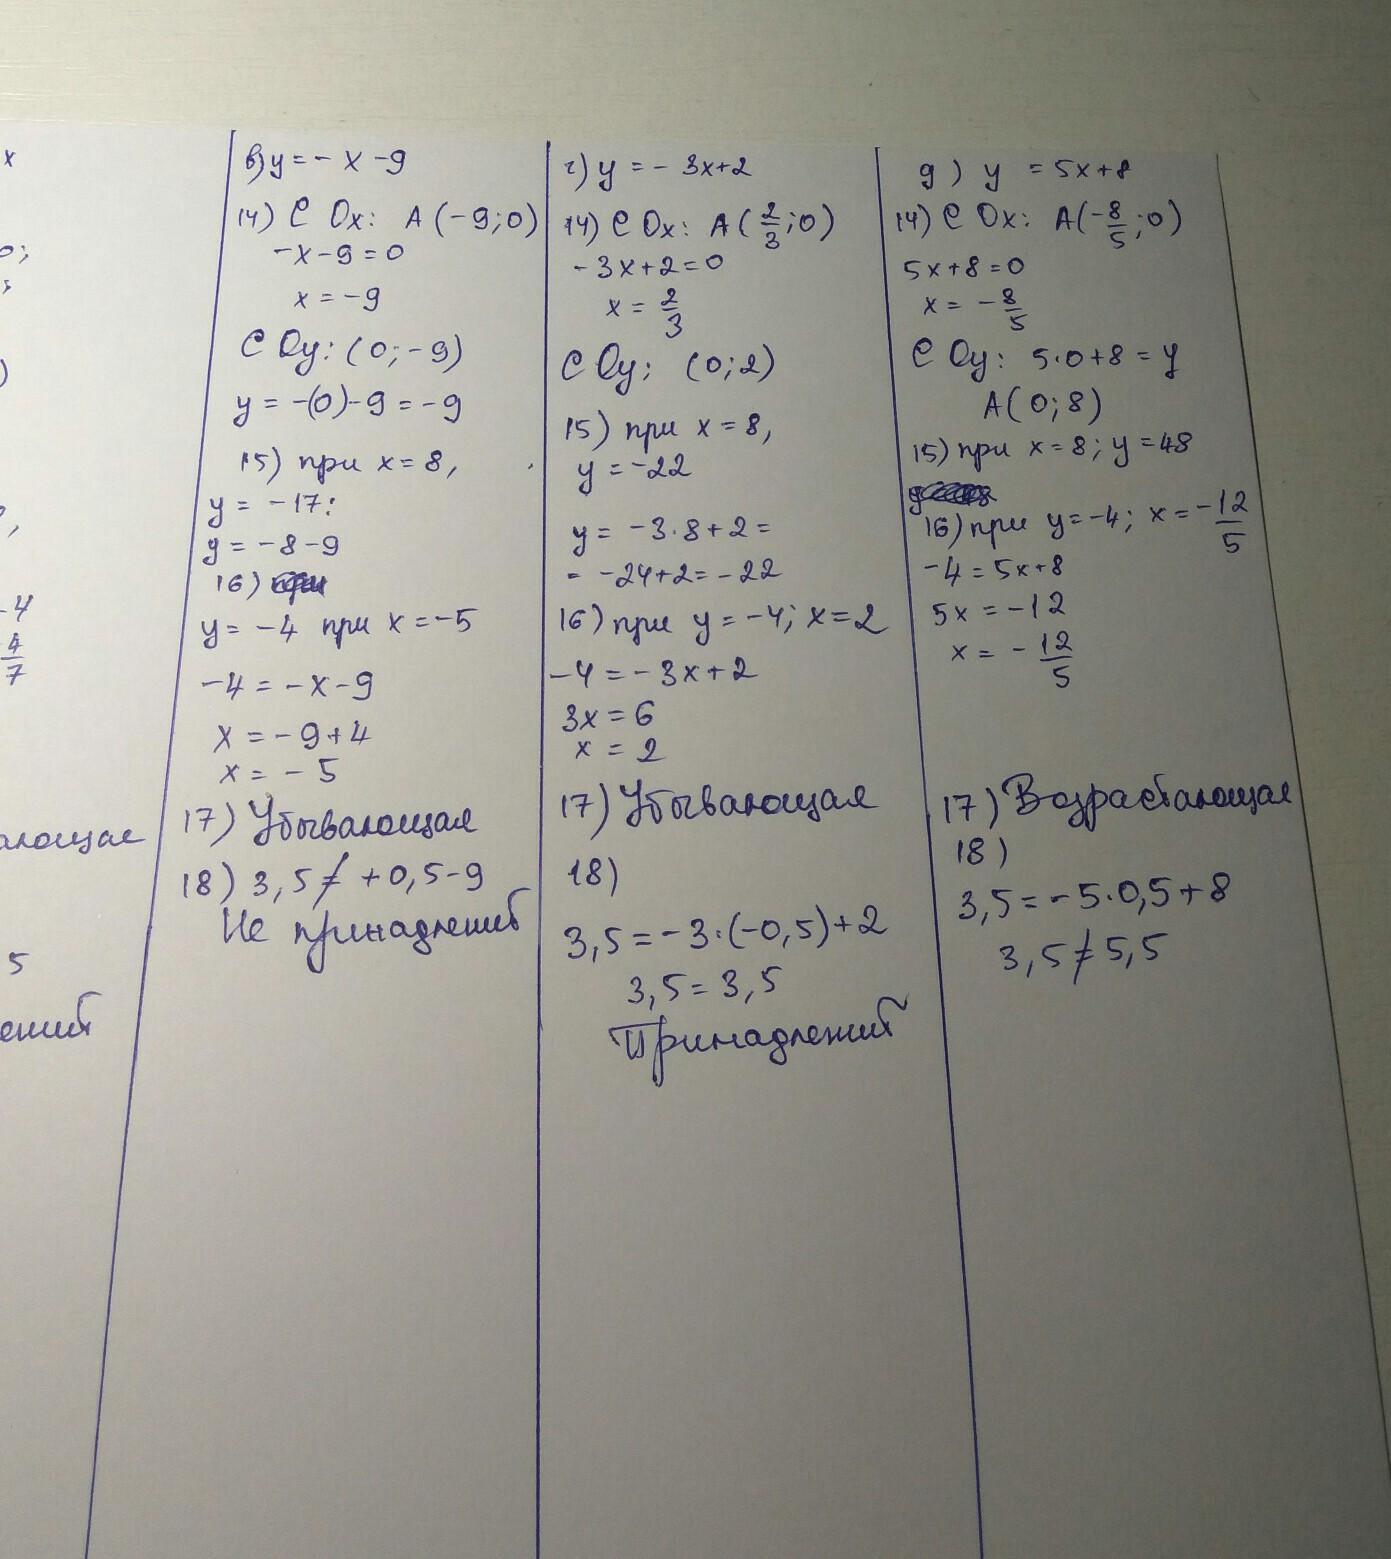 x
0;
;
)
,
-4
4/7
ающая
5
лежит
в) y = - x - 9
14) С Ox: A (-9; 0)
-x - 9 = 0
x = -9
С Oy: (0; -9)
y = -(0) - 9 = -9
15) при x = 8,
y = -17:
y = -8 - 9
16)
y = -4 при x = -5
-4 = -x - 9
x = -9 + 4
x = -5
17) Убывающая
18) 3,5 ≠ +0,5 - 9
Не принадлежит
г) y = - 3x + 2
14) С Ox: A (2/3; 0)
-3x + 2 = 0
x = 2/3
С Oy: (0; 2)
15) при x = 8,
y = -22
y = -3·8 + 2 =
= -24 + 2 = -22
16) при y = -4; x = 2
-4 = -3x + 2
3x = 6
x = 2
17) Убывающая
18)
3,5 = -3·(-0,5) + 2
3,5 = 3,5
Принадлежит
д) y = 5x + 8
14) С Ox: A(-8/5; 0)
5x + 8 = 0
x = -8/5
С Oy: 5·0 + 8 = y
A(0; 8)
15) при x = 8; y = 48
16) при y = -4; x = -12/5
-4 = 5x + 8
5x = -12
x = -12/5
17) Возрастающая
18)
3,5 = -5·0,5 + 8
3,5 ≠ 5,5